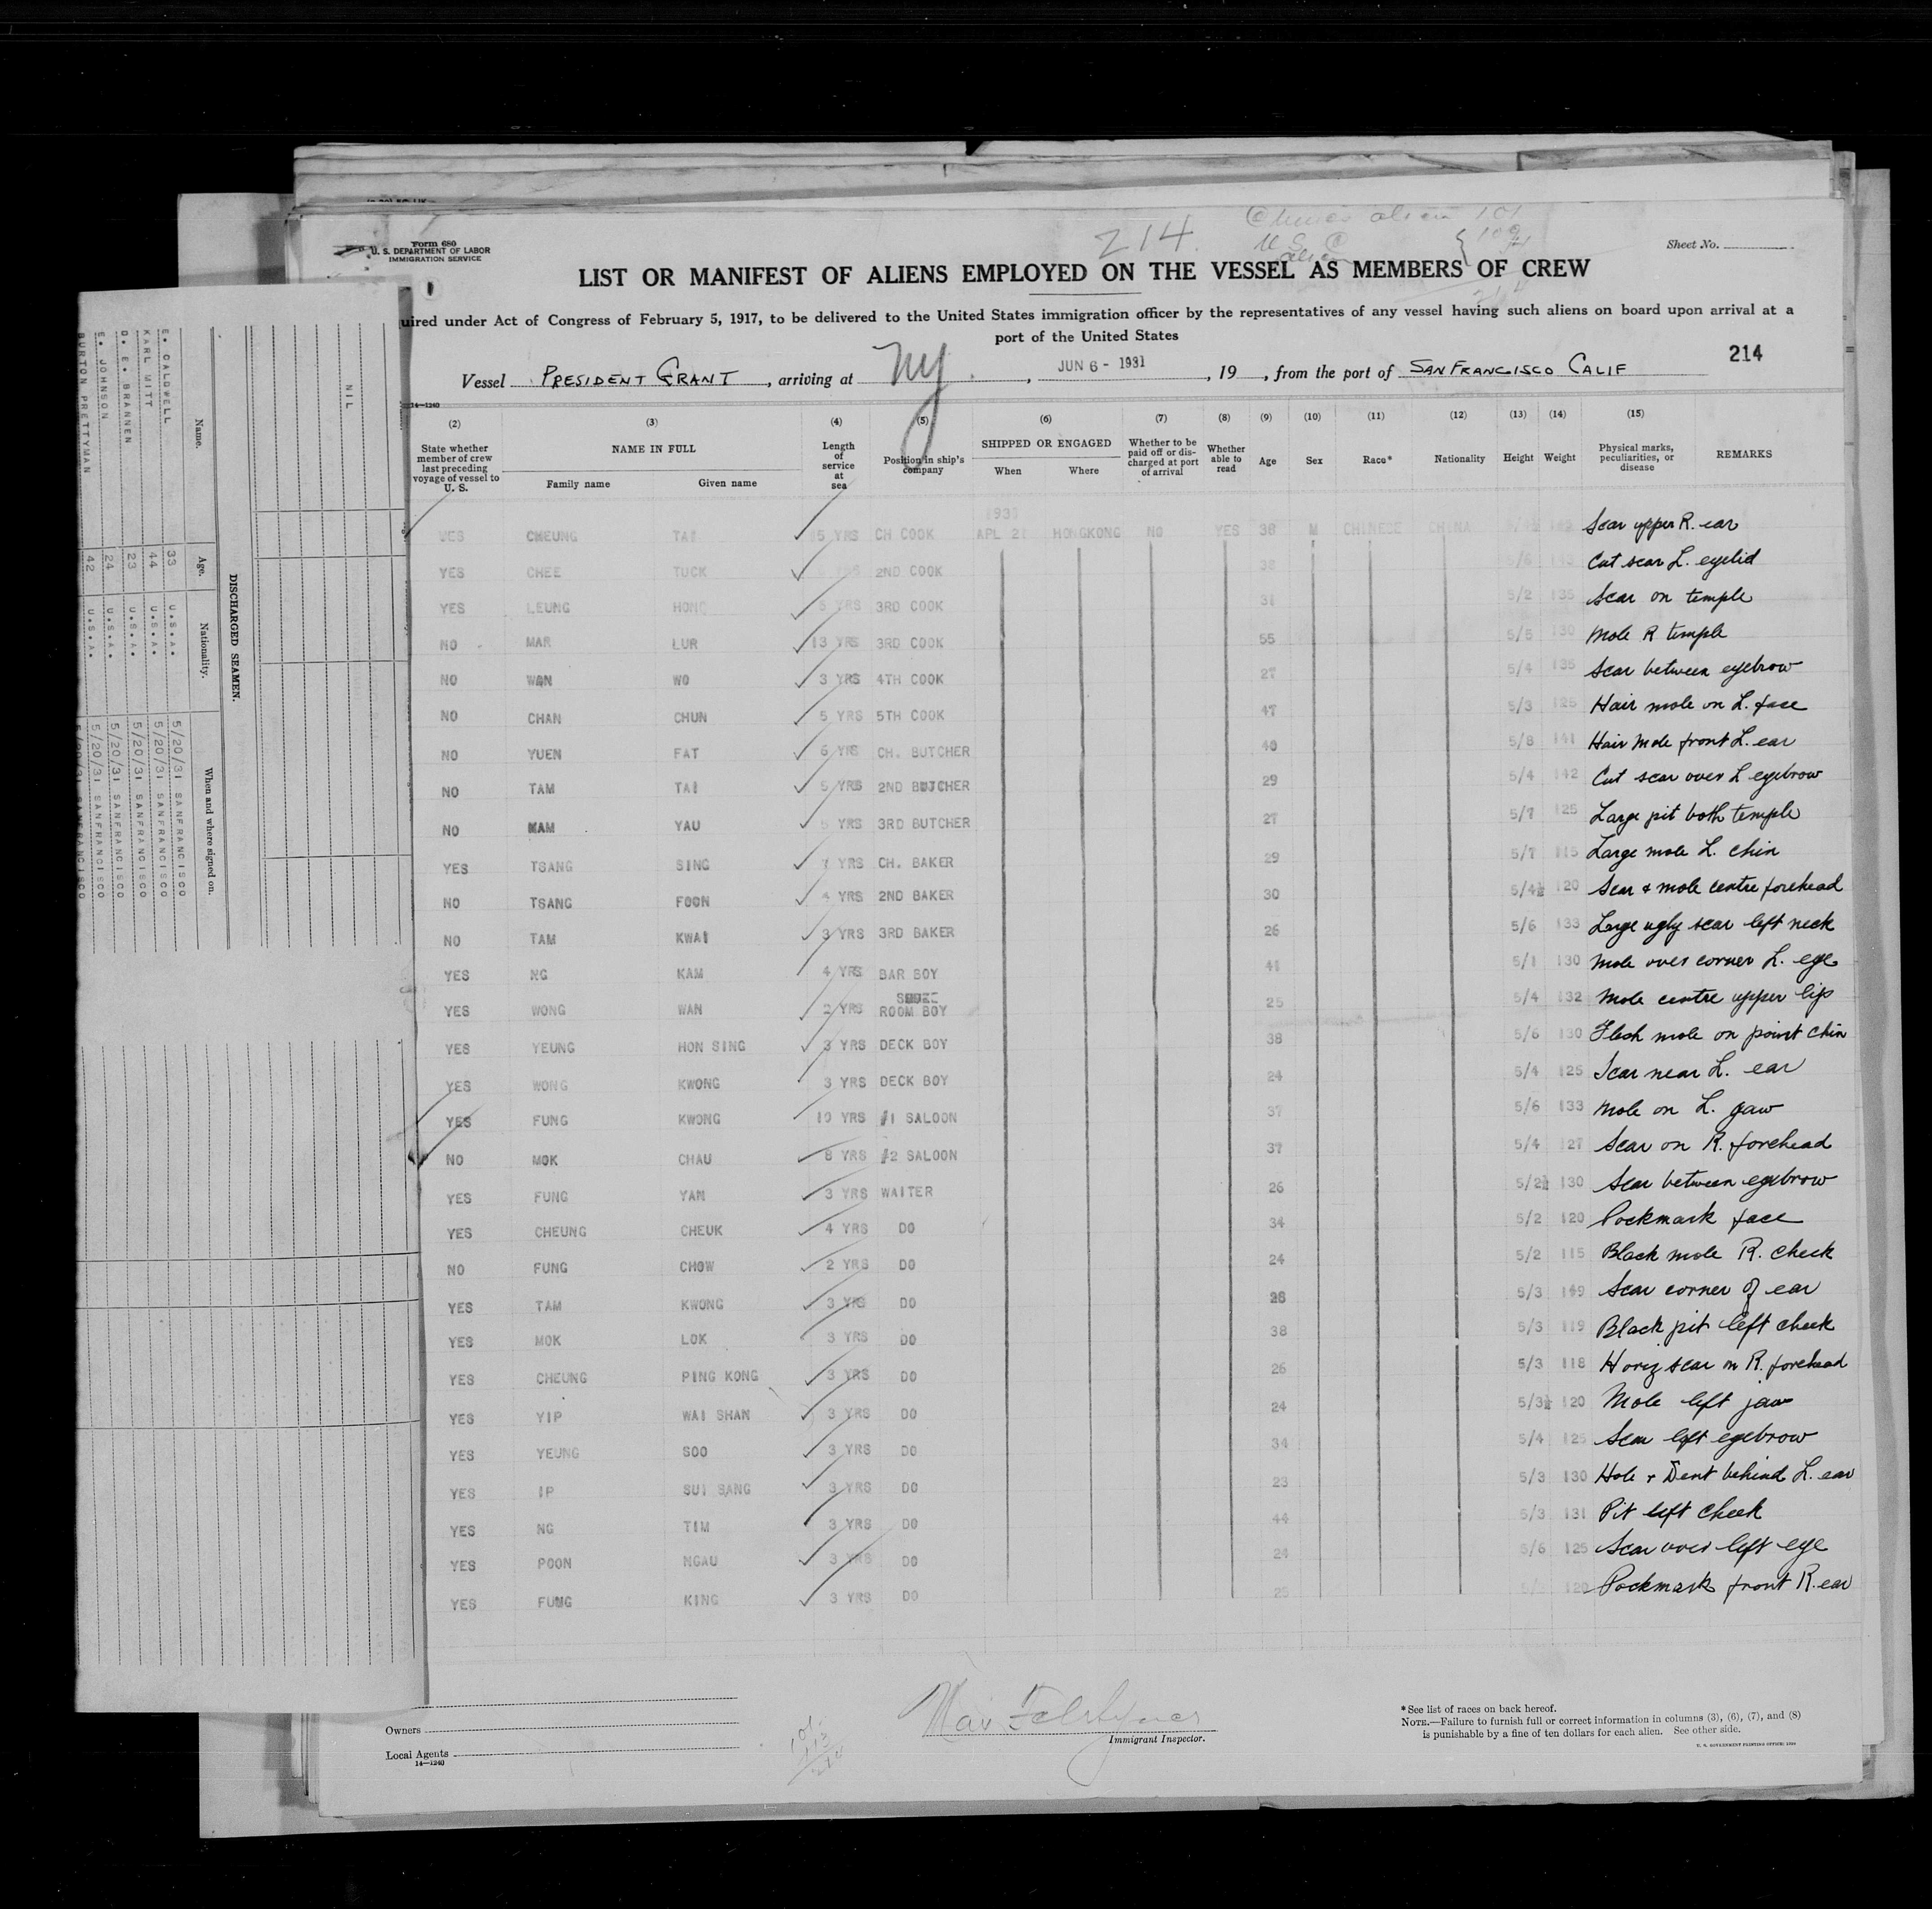 Form 680
U. S. DEPARTMENT OF LABOR
IMMIGRATION SERVICE
214.
Sheet No.
LIST OR MANIFEST OF ALIENS EMPLOYED ON THE VESSEL AS MEMBERS OF CREW
uired under Act of Congress of February 5, 1917, to be delivered to the United States immigration officer by the representatives of any vessel having such aliens on board upon arrival at a
port of the United States
214
Vessel PRESIDENT GRANT, arriving at NY, JUN 6 - 1931, 19, from the port of SAN FRANCISCO CALIF
14—1240
(2) (3) (4) (5) (6) (7) (8) (9) (10) (11) (12) (13) (14) (15)
State whether member of crew last preceding voyage of vessel to U. S.
NAME IN FULL
Family name Given name
Length of service at sea
Position in ship's company
SHIPPED OR ENGAGED
When Where
Whether to be paid off or discharged at port of arrival
Whether able to read
Age Sex Race* Nationality Height Weight
Physical marks, peculiarities, or disease
REMARKS
YES CHEUNG TAI 15 YRS CH COOK APL 21 HONGKONG NO YES 38 M CHINESE CHINA Scar upper R. ear
YES CHEE TUCK 2ND COOK 5/6 Cut scar L. eyelid
YES LEUNG HONG 5 YRS 3RD COOK 31 5/2 135 Scar on temple
NO MAR LUR 13 YRS 3RD COOK 55 5/5 130 Mole R temple
NO WAN WO 3 YRS 4TH COOK 27 5/4 135 Scar between eyebrow
NO CHAN CHUN 5 YRS 5TH COOK 47 5/3 125 Hair mole on L. face
NO YUEN FAT 6 YRS CH. BUTCHER 40 5/8 141 Hair Mole front L. ear
NO TAM TAI 5 YRS 2ND BUTCHER 29 5/4 142 Cut scar over L eyebrow
NO MAM YAU 5 YRS 3RD BUTCHER 27 5/7 125 Large pit both temple
YES TSANG SING 7 YRS CH. BAKER 29 5/7 115 Large mole L. chin
NO TSANG FOON 4 YRS 2ND BAKER 30 5/4½ 120 Scar & mole centre forehead
NO TAM KWAI 3 YRS 3RD BAKER 26 5/6 133 Large ugly scar left neck
YES NG KAM 4 YRS BAR BOY 41 5/1 130 Mole over corner L. eye
YES WONG WAN 2 YRS ROOM BOY 25 5/4 132 Mole centre upper lip
YES YEUNG HON SING 3 YRS DECK BOY 38 5/6 130 Flesh mole on point chin
YES WONG KWONG 3 YRS DECK BOY 24 5/4 125 Scar near L. ear
YES FUNG KWONG 10 YRS #1 SALOON 37 5/6 133 Mole on L. Jaw
NO MOK CHAU 8 YRS #2 SALOON 37 5/4 127 Scar on R. forehead
YES FUNG YAN 3 YRS WAITER 26 5/2½ 130 Scar between eyebrow
YES CHEUNG CHEUK 4 YRS DO 34 5/2 120 Pockmark face
NO FUNG CHOW 2 YRS DO 24 5/2 115 Black mole R. cheek
YES TAM KWONG 3 YRS DO 28 5/3 149 Scar corner of ear
YES MOK LOK 3 YRS DO 38 5/3 119 Black pit left cheek
YES CHEUNG PING KONG 3 YRS DO 26 5/3 118 Horiz scar on R. forehead
YES YIP WAI SHAN 3 YRS DO 24 5/3½ 120 Mole left jaw
YES YEUNG SOO 3 YRS DO 34 5/4 125 Scar left eyebrow
YES IP SUI SANG 3 YRS DO 23 5/3 130 Hole & Dent behind L. ear
YES NG TIM 3 YRS DO 44 5/3 131 Pit left cheek
YES POON NGAU 3 YRS DO 24 5/6 125 Scar over left eye
YES FUNG KING 3 YRS DO 25 120 Pockmark front R. ear
Owners
Local Agents
14—1240
Immigrant Inspector.
*See list of races on back hereof.
NOTE.—Failure to furnish full or correct information in columns (3), (6), (7), and (8)
is punishable by a fine of ten dollars for each alien. See other side.
U. S. GOVERNMENT PRINTING OFFICE: 1930
DISCHARGED SEAMEN.
Name. Age. Nationality. When and where signed on.
E. CALDWELL 33 U.S.A. 5/20/31 SANFRANCISCO
KARL WITT 44 U.S.A. 5/20/31 SANFRANCISCO
D. E. BRANNEN 23 U.S.A. 5/20/31 SANFRANCISCO
E. JOHNSON 24 U.S.A. 5/20/31 SANFRANCISCO
BURTON PRETTYMAN 42 U.S.A. 5/20/31 SANFRANCISCO
NIL